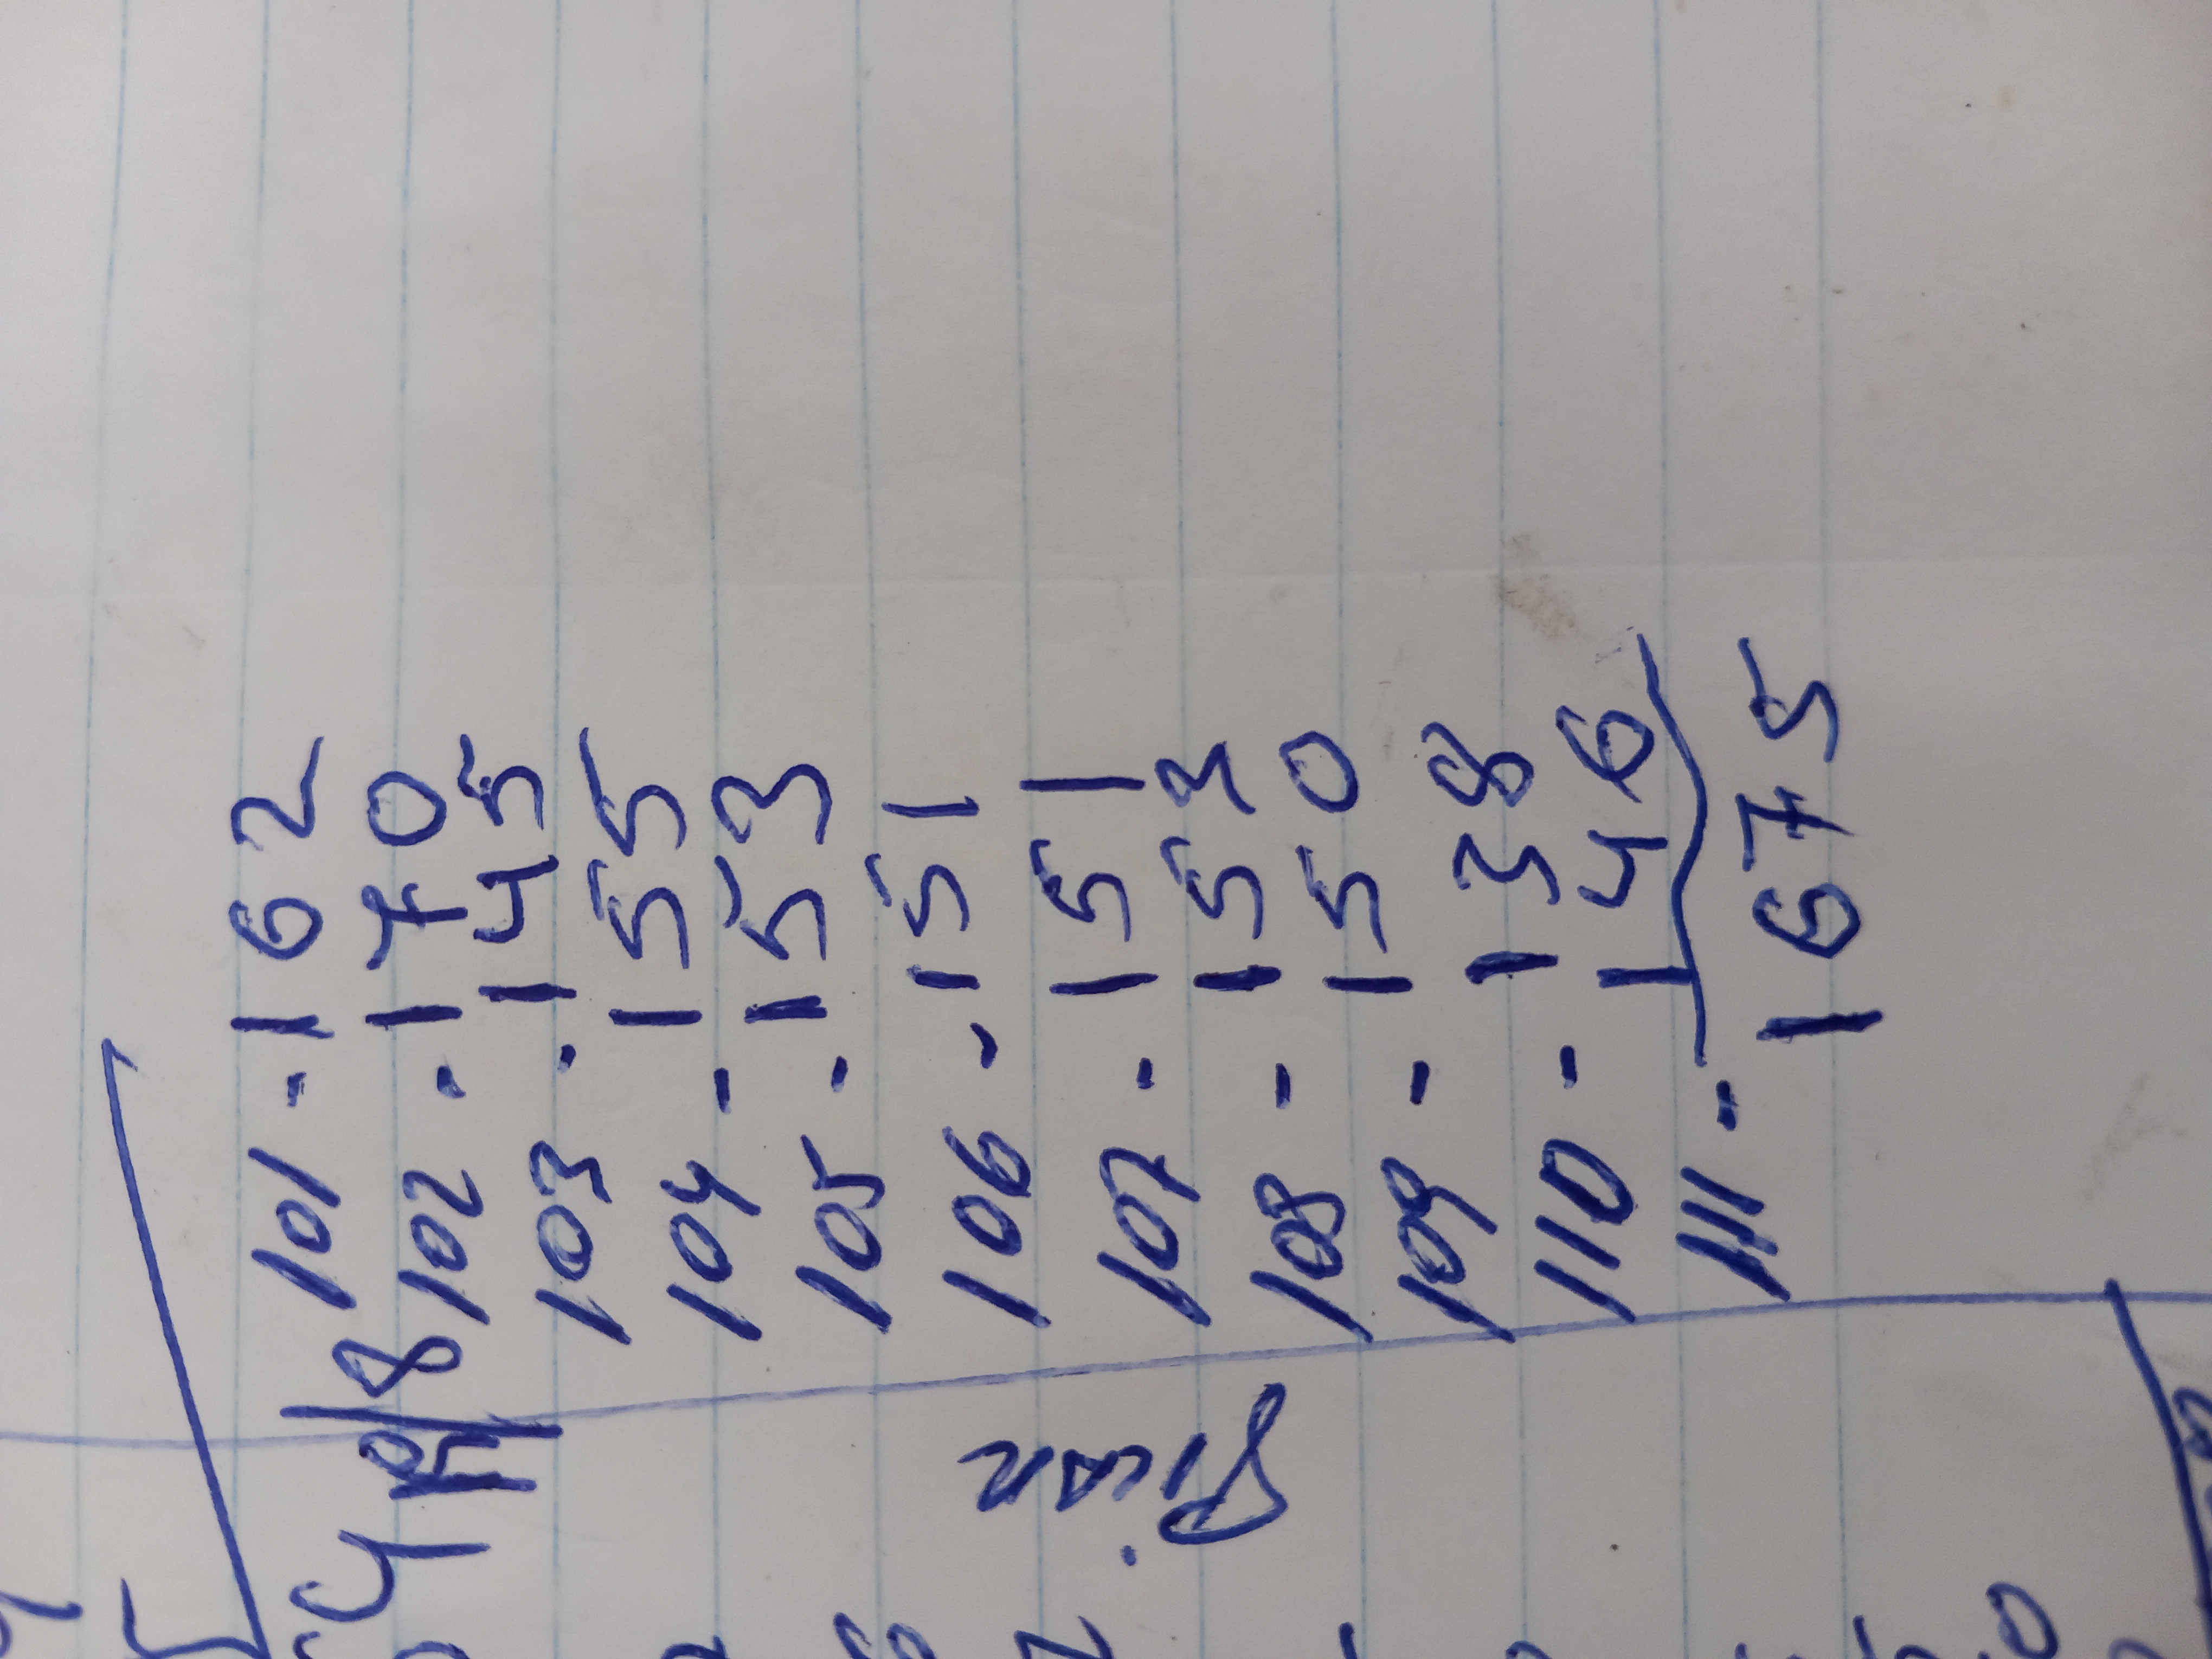 101 - 162
102 - 170
103 - 145
104 - 155
105 - 153
106 - 151
107 - 151
108 - 153
109 - 150
110 - 138
111 - 146
1675